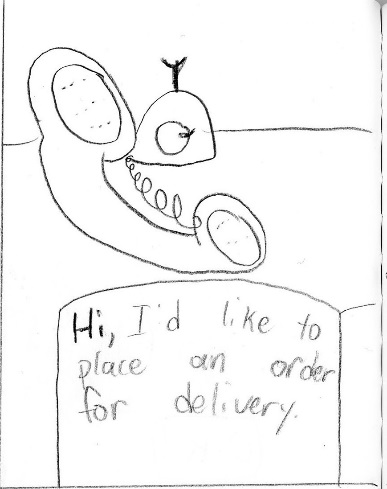 Hi, I'd like to
place an order
for delivery.